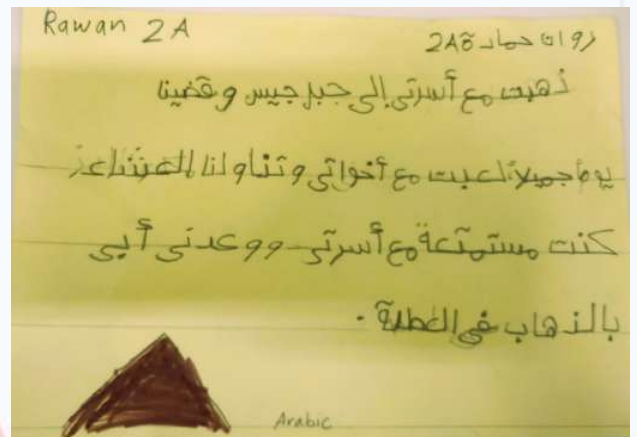 Rawan 2A
روان حمادة 2A
ذهبت مع أسرتي إلى جبل جيس وقضينا
يوماً جميلاً لعبت مع أخواتي وتناولنا
كنت مستمتعة مع أسرتي ووعدني أبي
بالذهاب في العطلة.
Arabic